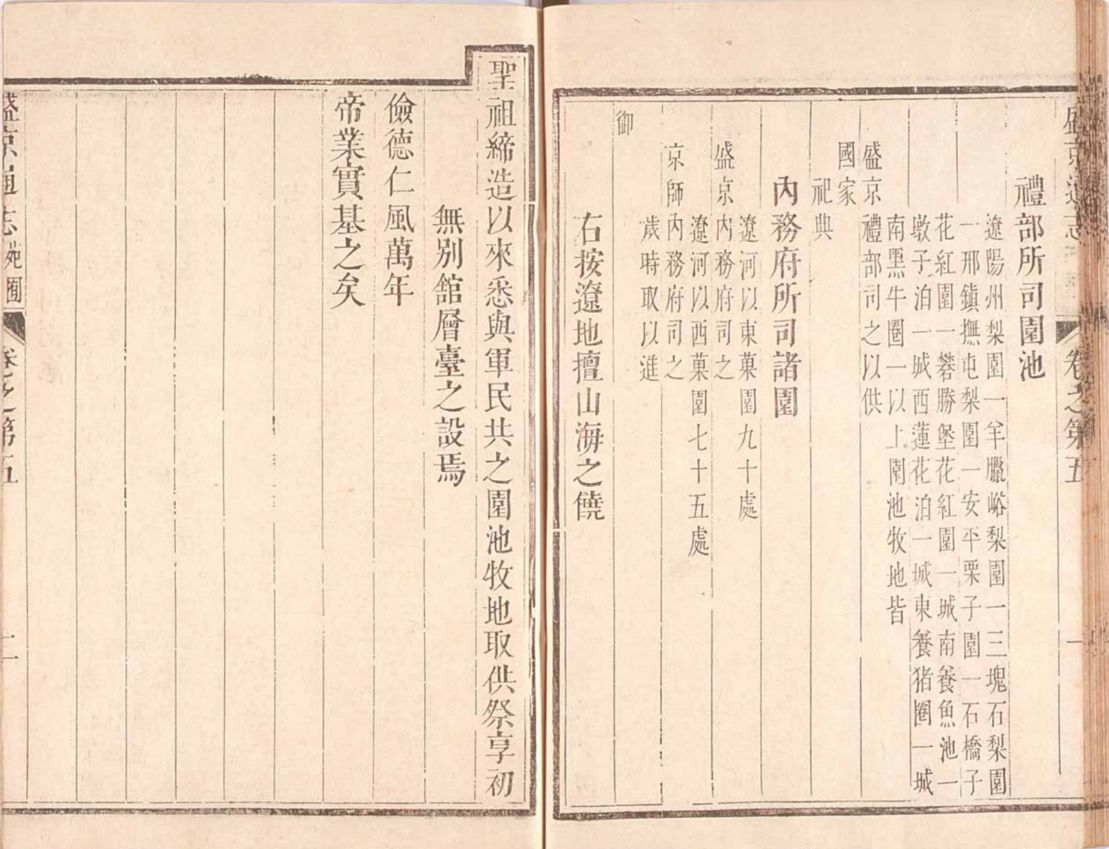 盛京通志
卷之第五
一
禮部所司園池
遼陽州梨園一羊臘峪梨園一三塊石梨園
一邢鎮撫屯梨園一安平栗子園一石橋子
花紅園一礬勝堡花紅園一城南養魚池一
墩子泊一城西蓮花泊一城東養猪圈一城
南黑牛圈一以上園池牧地皆
盛京禮部司之以供
國家
祀典
內務府所司諸園
遼河以東菓園九十處
盛京內務府司之
遼河以西菓園七十五處
京師內務府司之
歲時取以進
御
右按遼地擅山海之饒
聖祖締造以來悉與軍民共之園池牧地取供祭享初
無别館層臺之設焉
儉德仁風萬年
帝業實基之矣
盛京通志
苑囿
卷之第五
二